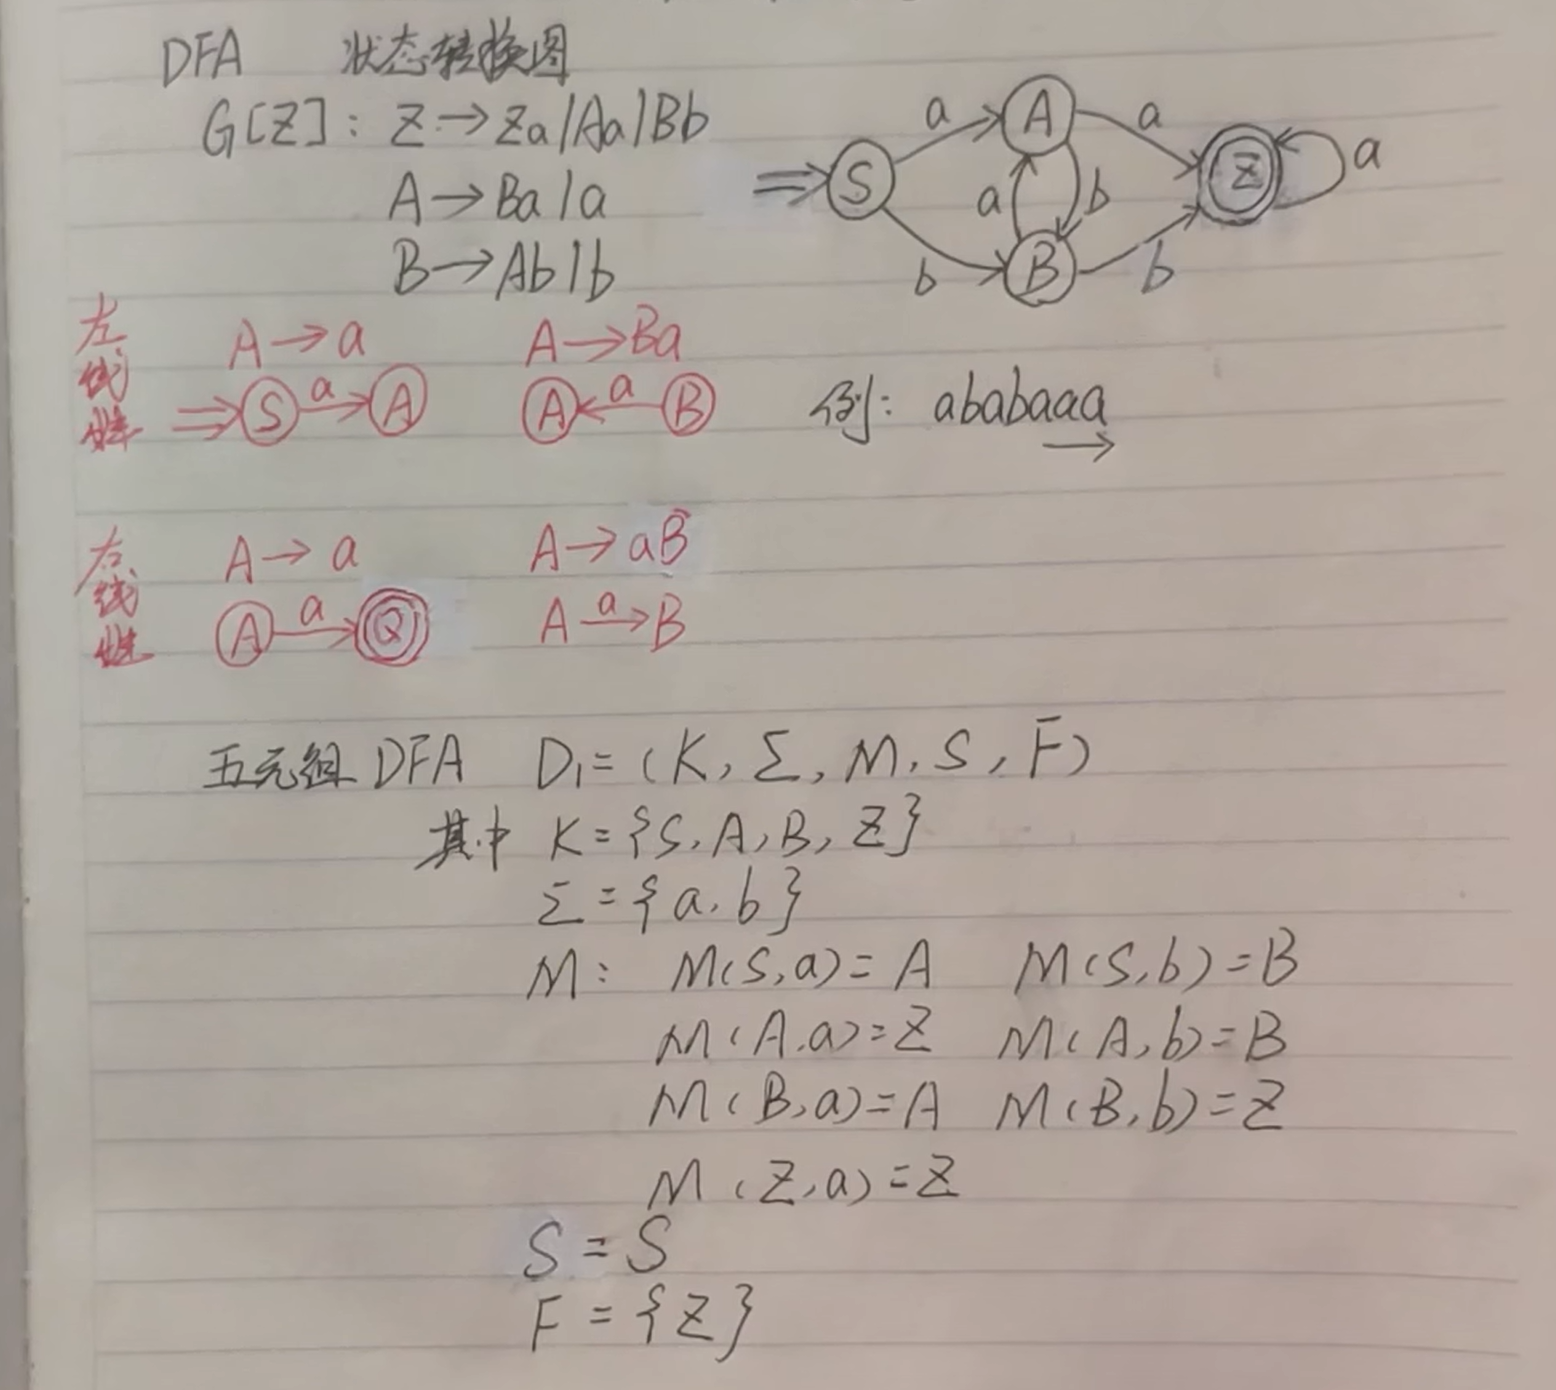 DFA 状态转换图
G[Z]: Z→Za|Aa|Bb
A→Ba|a
B→Ab|b
⇒ S a A a Z a
a b
b B b
左线性
A→a A→Ba
⇒ S a→ A A ←a B
例: ababaaa
右线性
A→a A→aB
A a→ Q A a→ B
五元组 DFA D₁=(K, Σ, M, S, F)
其中 K={S, A, B, Z}
Σ={a, b}
M: M(S,a)=A M(S,b)=B
M(A,a)=Z M(A,b)=B
M(B,a)=A M(B,b)=Z
M(Z,a)=Z
S=S
F={Z}